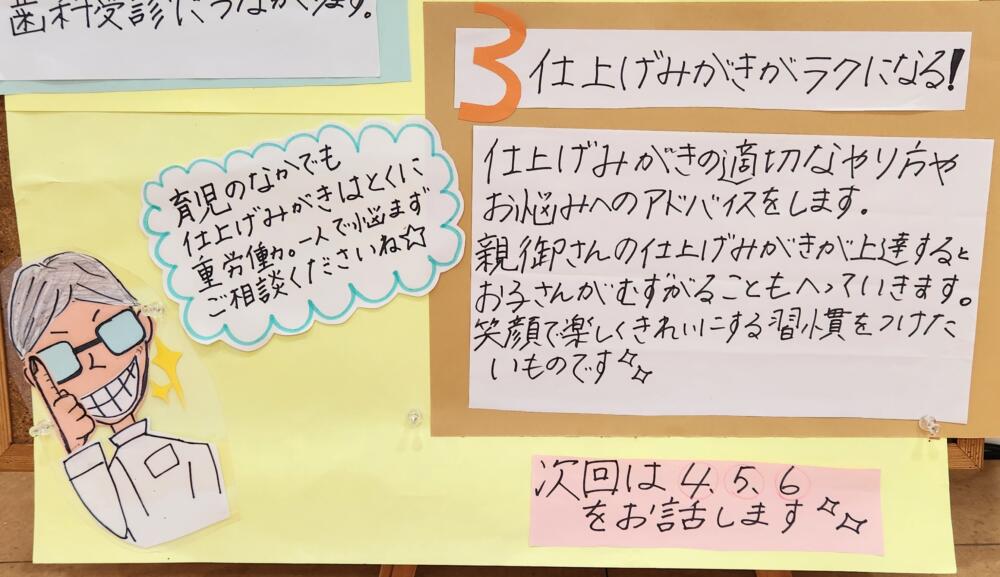 歯科受診につながります。
3 仕上げみがきがラクになる!
仕上げみがきの適切なやり方や
お悩みへのアドバイスをします。
親御さんの仕上げみがきが上達すると
お子さんがむずがることもへっていきます。
笑顔で楽しくきれいにする習慣をつけた
いものです
育児のなかでも
仕上げみがきはとくに
重労働。一人で悩まず
ご相談くださいね☆
次回は4、5、6
をお話します